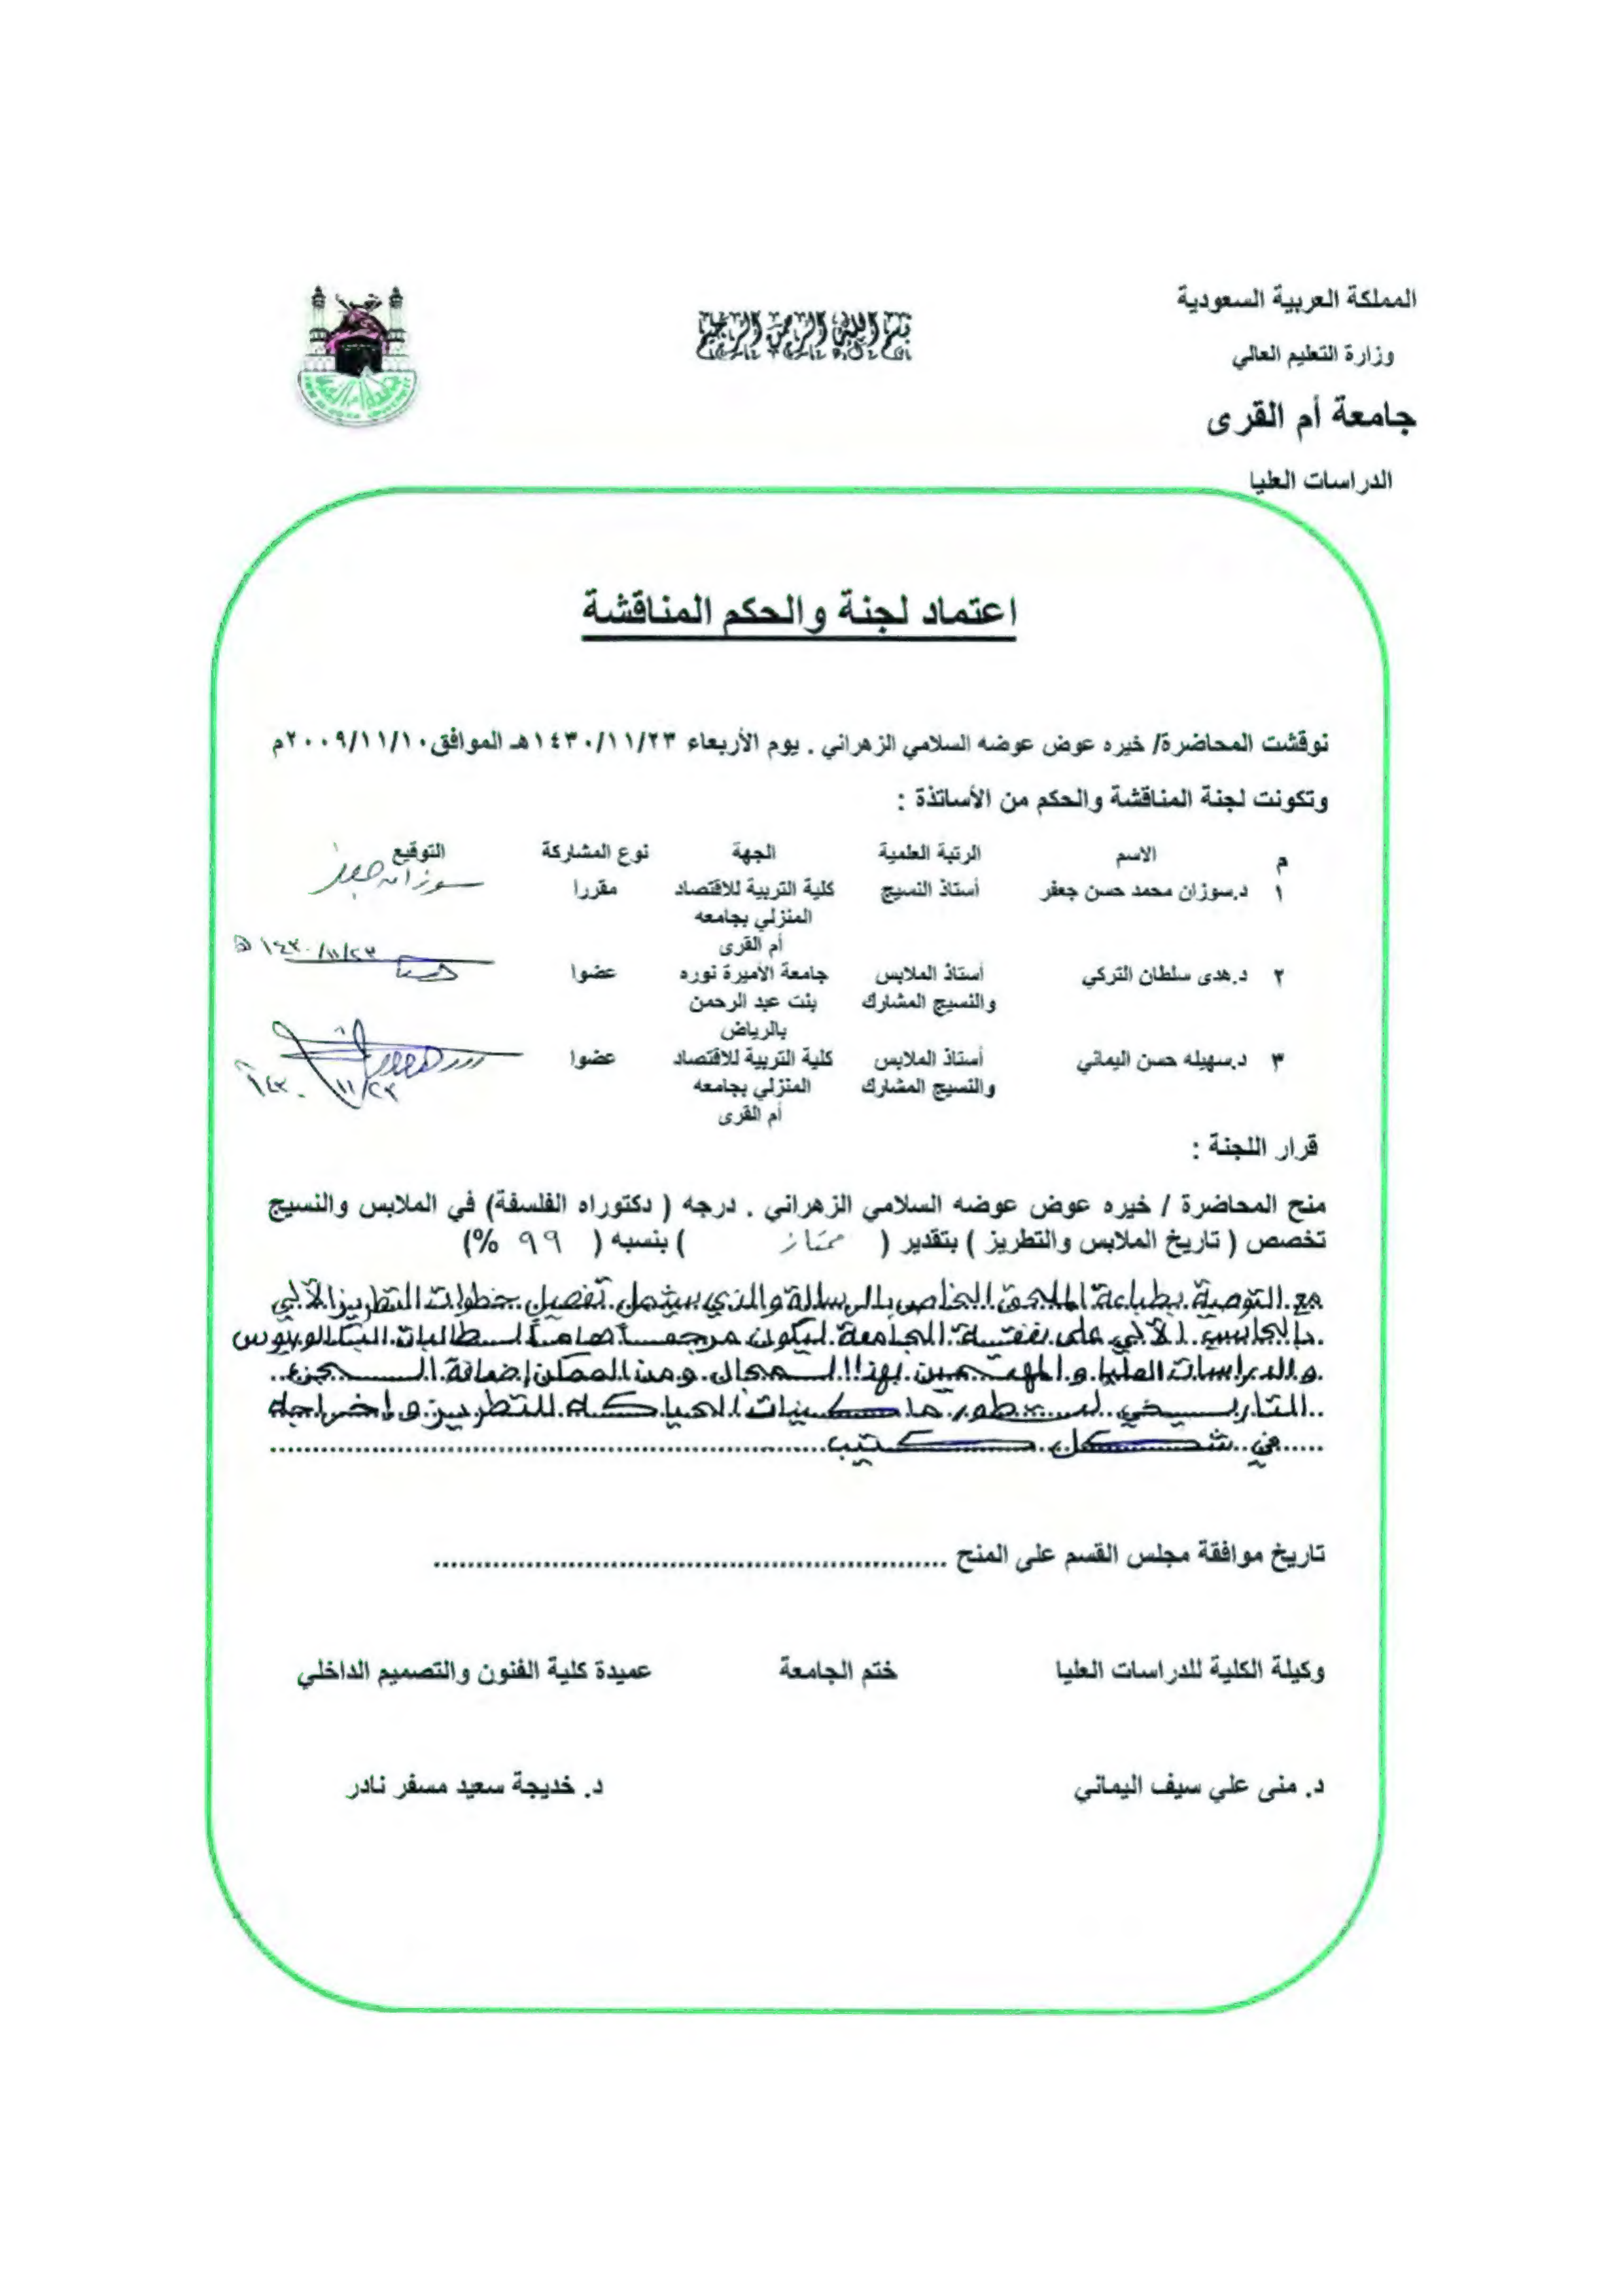 المملكة العربية السعودية
وزارة التعليم العالي
جامعة أم القرى
الدراسات العليا
بسم الله الرحمن الرحيم
اعتماد لجنة والحكم المناقشة
نوقشت المحاضرة/ خيره عوض عوضه السلامي الزهراني . يوم الأربعاء ١٤٣٠/١١/٢٣هـ الموافق٢٠٠٩/١١/١٠م
وتكونت لجنة المناقشة والحكم من الأساتذة :
م الاسم الرتبة العلمية الجهة نوع المشاركة التوقيع
١ د.سوزان محمد حسن جعفر أستاذ النسيج كلية التربية للاقتصاد مقررا
المنزلي بجامعه
أم القرى
١٤٣٠/١١/٢٣
٢ د.هدى سلطان التركي أستاذ الملابس جامعة الأميرة نوره عضوا
والنسيج المشارك بنت عبد الرحمن
بالرياض
٣ د.سهيله حسن اليماني أستاذ الملابس كلية التربية للاقتصاد عضوا
والنسيج المشارك المنزلي بجامعه
أم القرى
قرار اللجنة :
منح المحاضرة / خيره عوض عوضه السلامي الزهراني . درجه ( دكتوراه الفلسفة) في الملابس والنسيج
تخصص ( تاريخ الملابس والتطريز ) بتقدير ( ممتاز ) بنسبه ( ٩٩ %)
مع التوصية بطباعة الملحق الخاص بالرسالة والذي يشمل تفصيل خطوات التطريز الآلي
بالحاسب الآلي على نفقة الجامعة ليكون مرجعاً هاماً لطالبات البكالوريوس
والدراسات العليا والمهتمين بهذا المجال ومن الممكن إضافة الجزء
التاريخي لتطور ماكينات الحياكة للتطريز وإخراجه
في شكل كتيب
تاريخ موافقة مجلس القسم على المنح ........................
وكيلة الكلية للدراسات العليا ختم الجامعة عميدة كلية الفنون والتصميم الداخلي
د. منى علي سيف اليماني د. خديجة سعيد مسفر نادر